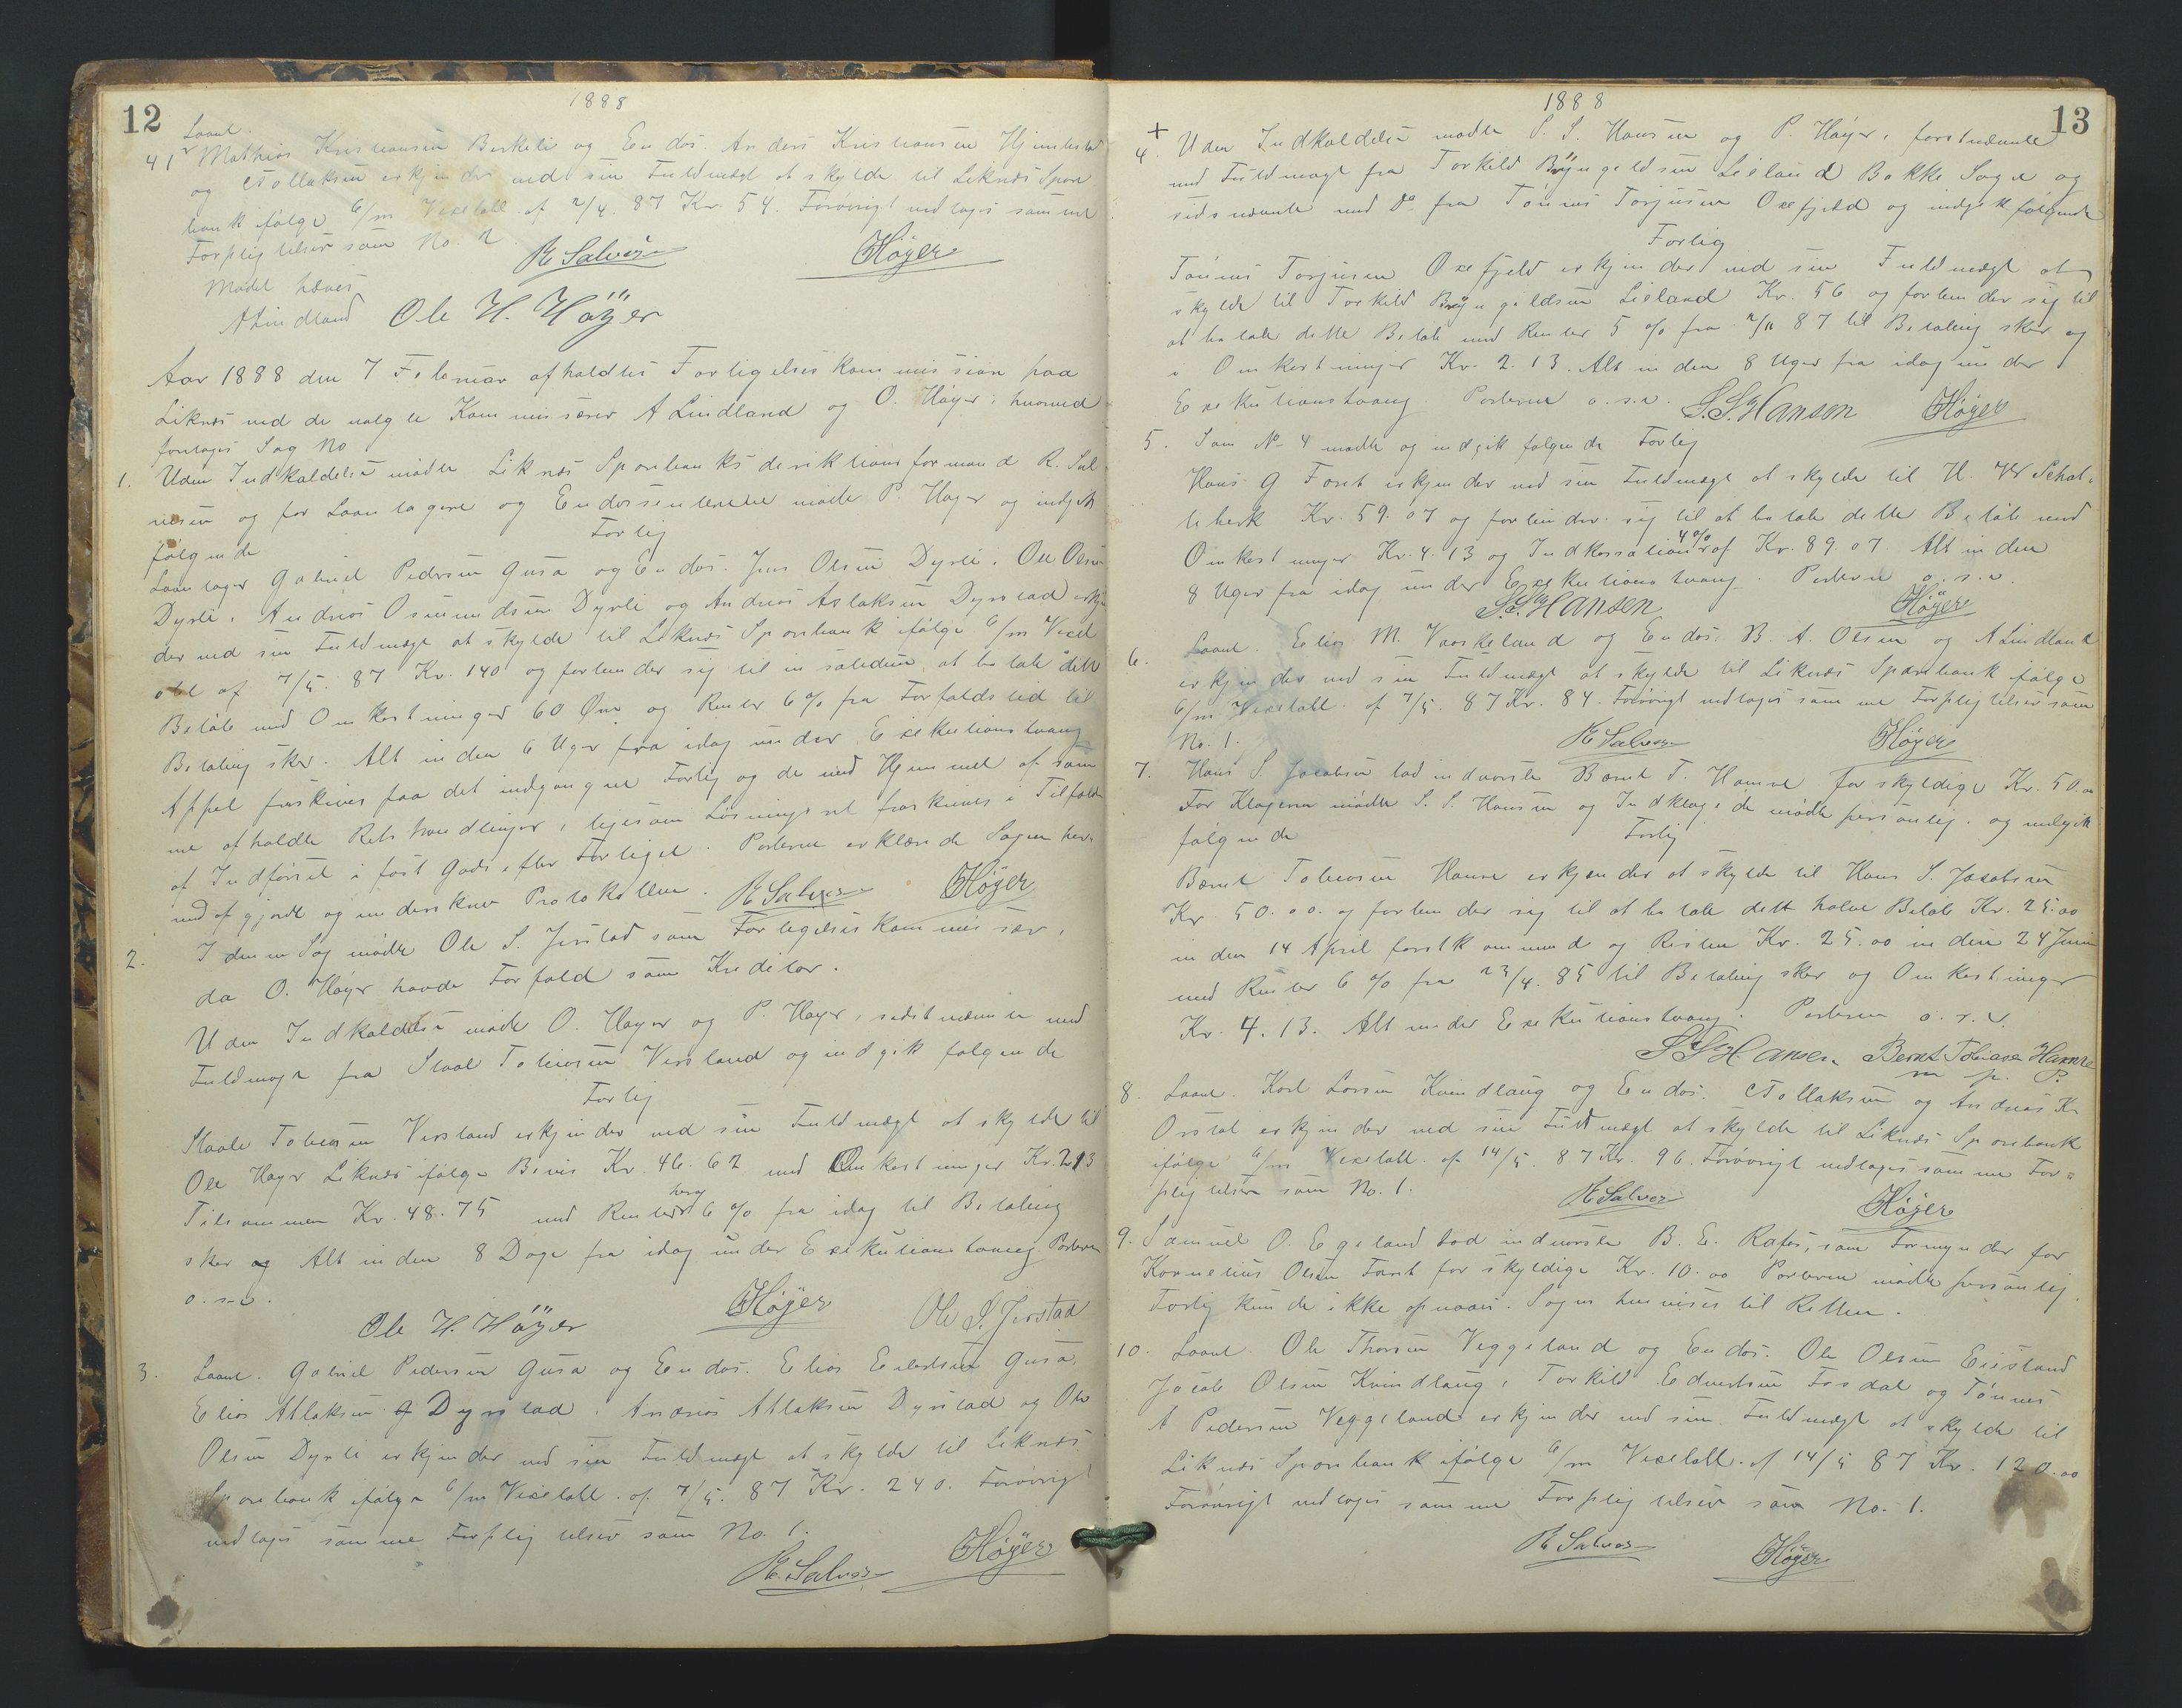 12
1888
Laant.
41 Mathias Kristiansen Birkeli og Endos. Anders Kristiansen Hjemlestad
og ATollaksen erkjender ved sin Fuldmægt at skylde til Liknes Spare
bank ifølge 6/m Vexelobl. af 2/4. 87 Kr. 54. Forøvrigt vedtoges samme
Forpligtelser som No. 2
R Salves Høyer
Mødet hæves
ALindland Ole H. Höÿer
Aar 1888 den 7 Februar afholdtes Forligelseskommission paa
Liknes ved de valgte Kommissærer A Lindland og O. Høyer, hvorved
foretoges Sag No
1. Uden Indkaldelse mødte Liknes Sparebanks direktionsformand R. Sal
vesen og for Laantagere og Endossenterne mødte P. Høyer og indgik
følgende Forlig
Laantager Gabriel Pedersen Gusa og Endos. Jens Olsen Dyrli, Ole Olsen
Dyrli, Andreas Osmundsen Dyrli og Andreas Aslaksen Dyrstad erkjen
der ved sin Fuldmægt at skylde til Liknes Sparebank ifølge 6/m Vexel
obl af 7/5. 87 Kr. 140 og forbinder sig til in solidum at betale dette
Beløb med Omkostninger 60 Øre og Renter 6% fra Forfaldstid til
Betaling sker. Alt inden 6 Uger fra idag under Exekutionstvang
Appel fraskrives paa det indgangne Forlig og de med Hjemmel af sam
me afholdte Retshandlinger, ligesom Løsningsret fraskrives i Tilfælde
af Indførsel i fast Gods efter Forliget. Parterne erklærede Sagen her
med afgjordt og underskrev Protokollen. R Salves Høyer
2. I denne Sag mødte Ole S. Jerstad som Forligelseskommissær,
da O. Høyer havde Forfald som Kreditor.
Uden Indkaldelse mødte O. Høyer og P. Høyer, sidstnævnte med
Fuldmagt fra Staale Tobiasen Versland og indgik følgende
Forlig
Staale Tobiasen Versland erkjender ved sin Fuldmægt at skylde til
Ole Høyer Liknes ifølge Bevis Kr. 46. 62 med Omkostninger Kr. 2,13
Tilsammen Kr. 48. 75 med Renter heraf 6 % fra idag til Betaling
sker og Alt inden 8 Dage fra idag under Exekutionstvang Parterne
o. s. v.
Ole H. Höÿer Høyer Ole S. Jerstad
3. Laant. Gabriel Pedersen Gusa og Endos. Elias Eilertsen Gusa,
Elias Atlaksen Dyrstad, Andreas Atlaksen Dyrstad og Ole
Olsen Dyrli erkjender ved sin Fuldmægt at skylde til Liknes
Sparebank ifølge 6/m Vexelobl. af 7/5. 87 Kr. 240. Forøvrigt
vedtoges samme Forpligtelser som No. 1.
R. Salves Høyer
1888
13
+
4. Uden Indkaldelse mødte S. S. Hansen og P. Høyer, førstnævnte
med Fuldmagt fra Torkild Bryngeldsen Lieland Bakke Sogn og
sidsnævnte med Do fra Tønnes Torjusen Oxefjeld og indgik følgende
Forlig
Tønnes Torjusen Oxefjeld erkjender ved sin Fuldmægt at
skylde til Torkild Bryngeldsen Lieland Kr. 56 og forbinder sig til
at betale dette Beløb med Renter 5 % fra 2/11 87 til Betaling sker og
i Omkostninger Kr. 2. 13. Alt inden 8 Uger fra idag under
Exekutionstvang Parterne o. s. v. S. S. Hansen Høyer
5. Som No 4 mødte og indgik følgende Forlig
Hans G Foret erkjender ved sin Fuldmægt at skylde til H. W Schat.
Kr. 59. 07 og forbinder sig til at betale dette Beløb med
Omkostninger Kr. 4. 13 og Indkassation 4% af Kr. 89. 07. Alt inden
8 Uger fra idag under Exekutionstvang. Parterne o. s. v.
S. S. Hansen Høyer
6. Laant. Elias M. Vaaskeland og Endos. B. A. Olsen og ALindland
erkjender ved sin Fuldmægt at skylde til Liknes Sparebank ifølge
6/m Vexelobl. af 7/5. 87 Kr. 84. Forøvrigt vedtoges samme Forpligtelser som
No. 1. R Salves Høyer
7. Hans S. Jacobsen lod indvarsle Bernt T. Hamre for skyldige Kr. 50.00
For Klageren mødte S. S. Hansen og Indklagede mødte personlig. og indgik
følgende Forlig
Bernt Tobiasen Hamre erkjender at skylde til Hans S. Jacobsen
Kr 50.00. og forbinder sig til at betale dett halve Beløb Kr. 25.00
inden 14 April førstkommend og Resten Kr. 25.00 inden 24 Juni
med Renter 6 % fra 23/4. 85 til Betaling sker og Omkostninger
Kr. 4. 13. Alt under Exekutionstvang. Parterne o. s. v.
S S Hansen Bernt Tobiasen Hamre
m p. P.
8. Laant. Karl Larsen Kvindlaug og Endos. ATollaksen og Andreas K.
Orstat erkjender ved sin Fuldmægt at skylde til Liknes Sparebank
ifølge 6/m Vexelobl. af 14/5. 87 Kr. 96. Forøvrigt vedtoges samme For=
pligtelser som No. 1. R Salves Høyer
9. Samuel O. Egeland lod indvarsle B. E. Rafos, som Formynder for
Kornelius Olsen Foret for skyldige Kr. 10.00 Parterne mødte personlig.
Forlig kunde ikke opnaaes. Sagen henvises til Retten.
10. Laant. Ole Thorsen Veggeland og Endos. Ole Olsen Eiesland
Jacob Olsen Kvindlaug, Torkild Edvertsen Fosdal og Tønnes
A Pedersen Veggeland erkjender ved sin Fuldmægt at skylde til
Liknes Sparebank ifølge 6/m Vexelobl. af 14/5 87 Kr. 120.00
Forøvrigt vedtoges samme Forpligtelser som No. 1.
R Salves Høyer